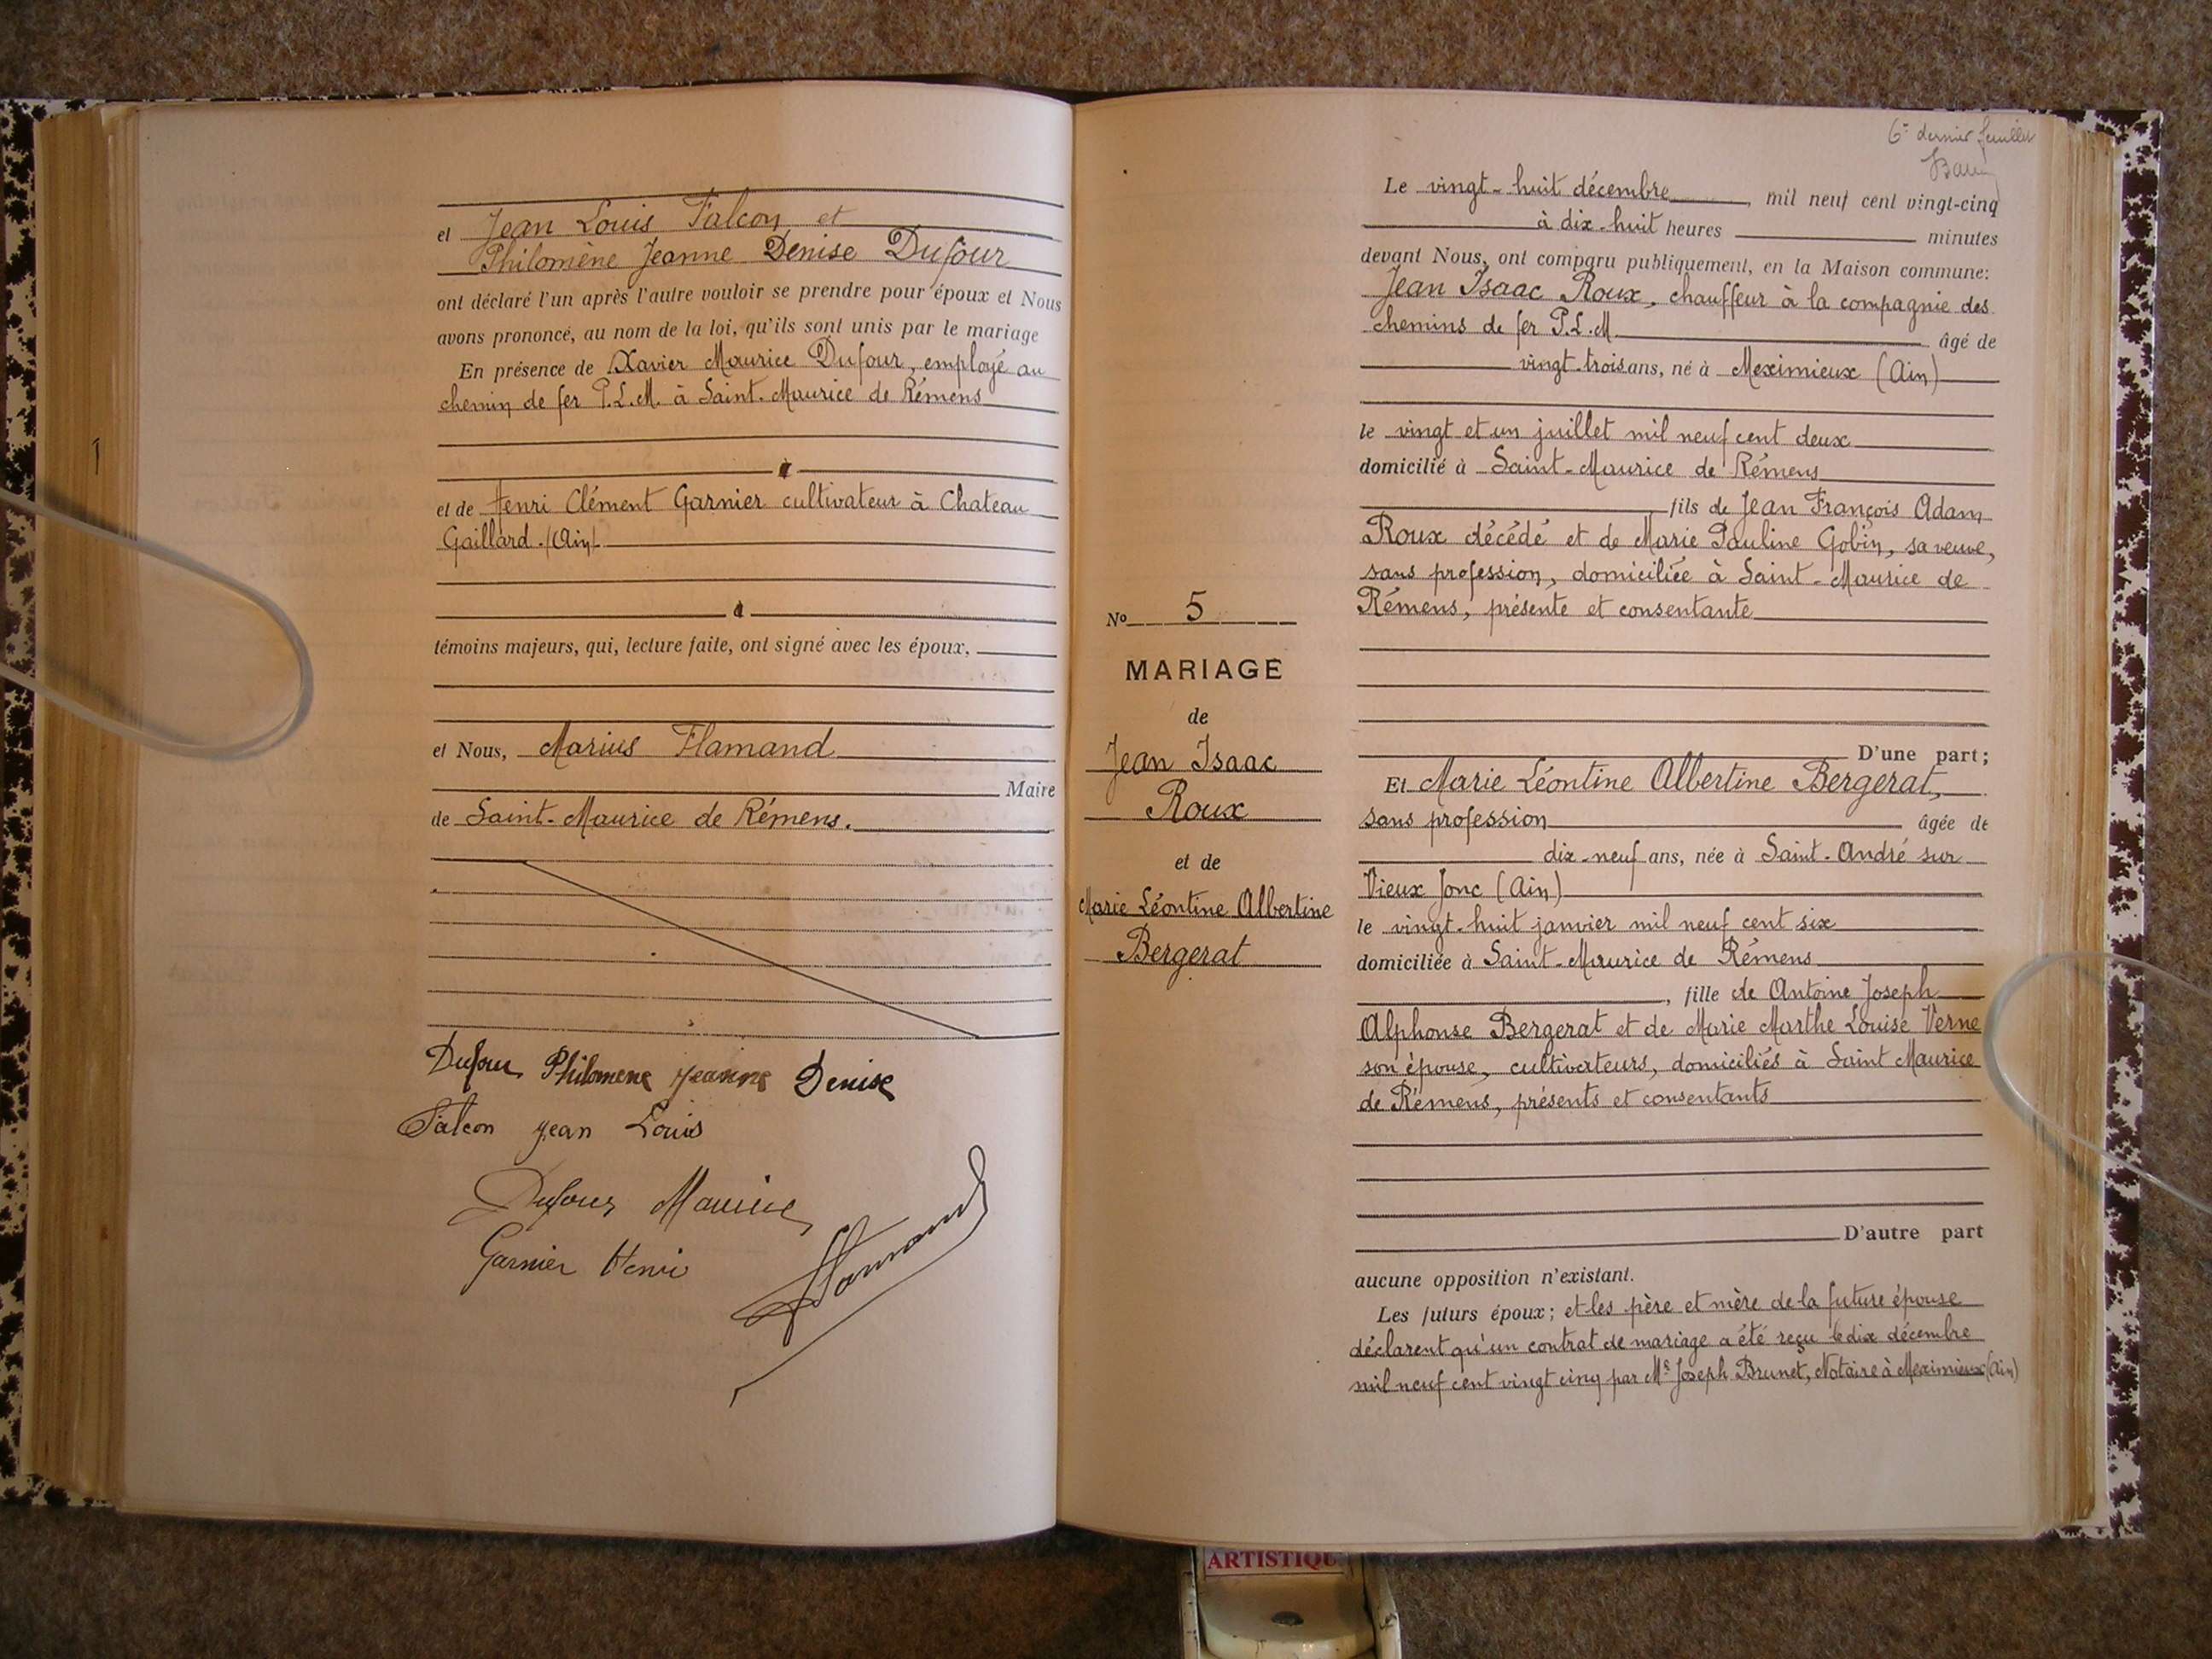 et Jean Louis Falcon et
Philomène Jeanne Denise Dufour
ont déclaré l'un après l'autre vouloir se prendre pour époux et Nous
avons prononcé, au nom de la loi, qu'ils sont unis par le mariage
En présence de Xavier Maurice Dufour, employé au
chemin de fer P.L.M. à Saint-Maurice de Rémens
et de Henri Clément Garnier cultivateur à Chateau
Gaillard (Ain)
témoins majeurs, qui, lecture faite, ont signé avec les époux,
et Nous, Marius Flamand
Maire
de Saint-Maurice de Rémens.
Dufour Philomene jeanne Denise
Falcon jean Louis
Dufour Maurice
Garnier Henri
Flamand
6e dernier feuillet
Le vingt-huit décembre, mil neuf cent vingt-cinq
à dix-huit heures minutes
devant Nous, ont comparu publiquement, en la Maison commune:
Jean Isaac Roux, chauffeur à la compagnie des
chemins de fer P.L.M âgé de
vingt-trois ans, né à Meximieux (Ain)
le vingt et un juillet mil neuf cent deux
domicilié à Saint-Maurice de Rémens
fils de Jean François Adam
Roux décédé et de Marie Pauline Gobin, sa veuve,
sans profession, domiciliée à Saint-Maurice de
Rémens, présente et consentante
D'une part;
Et Marie Léontine Albertine Bergerat,
sans profession âgée de
dix-neuf ans, née à Saint-André sur
Vieux Jonc (Ain)
le vingt-huit janvier mil neuf cent six
domiciliée à Saint-Maurice de Rémens
, fille de Antoine Joseph
Alphonse Bergerat et de Marie Marthe Louise Verne
son épouse, cultivateurs, domiciliés à Saint Maurice
de Rémens, présents et consentants
D'autre part
aucune opposition n'existant.
Les futurs époux; et les père et mère de la future épouse
déclarent qu'un contrat de mariage a été reçu le dix décembre
mil neuf cent vingt cinq par Me Joseph Brunet, Notaire à Meximieux (Ain)
No 5
MARIAGE
de
Jean Isaac
Roux
et de
Marie Léontine Albertine
Bergerat
ARTISTIQU